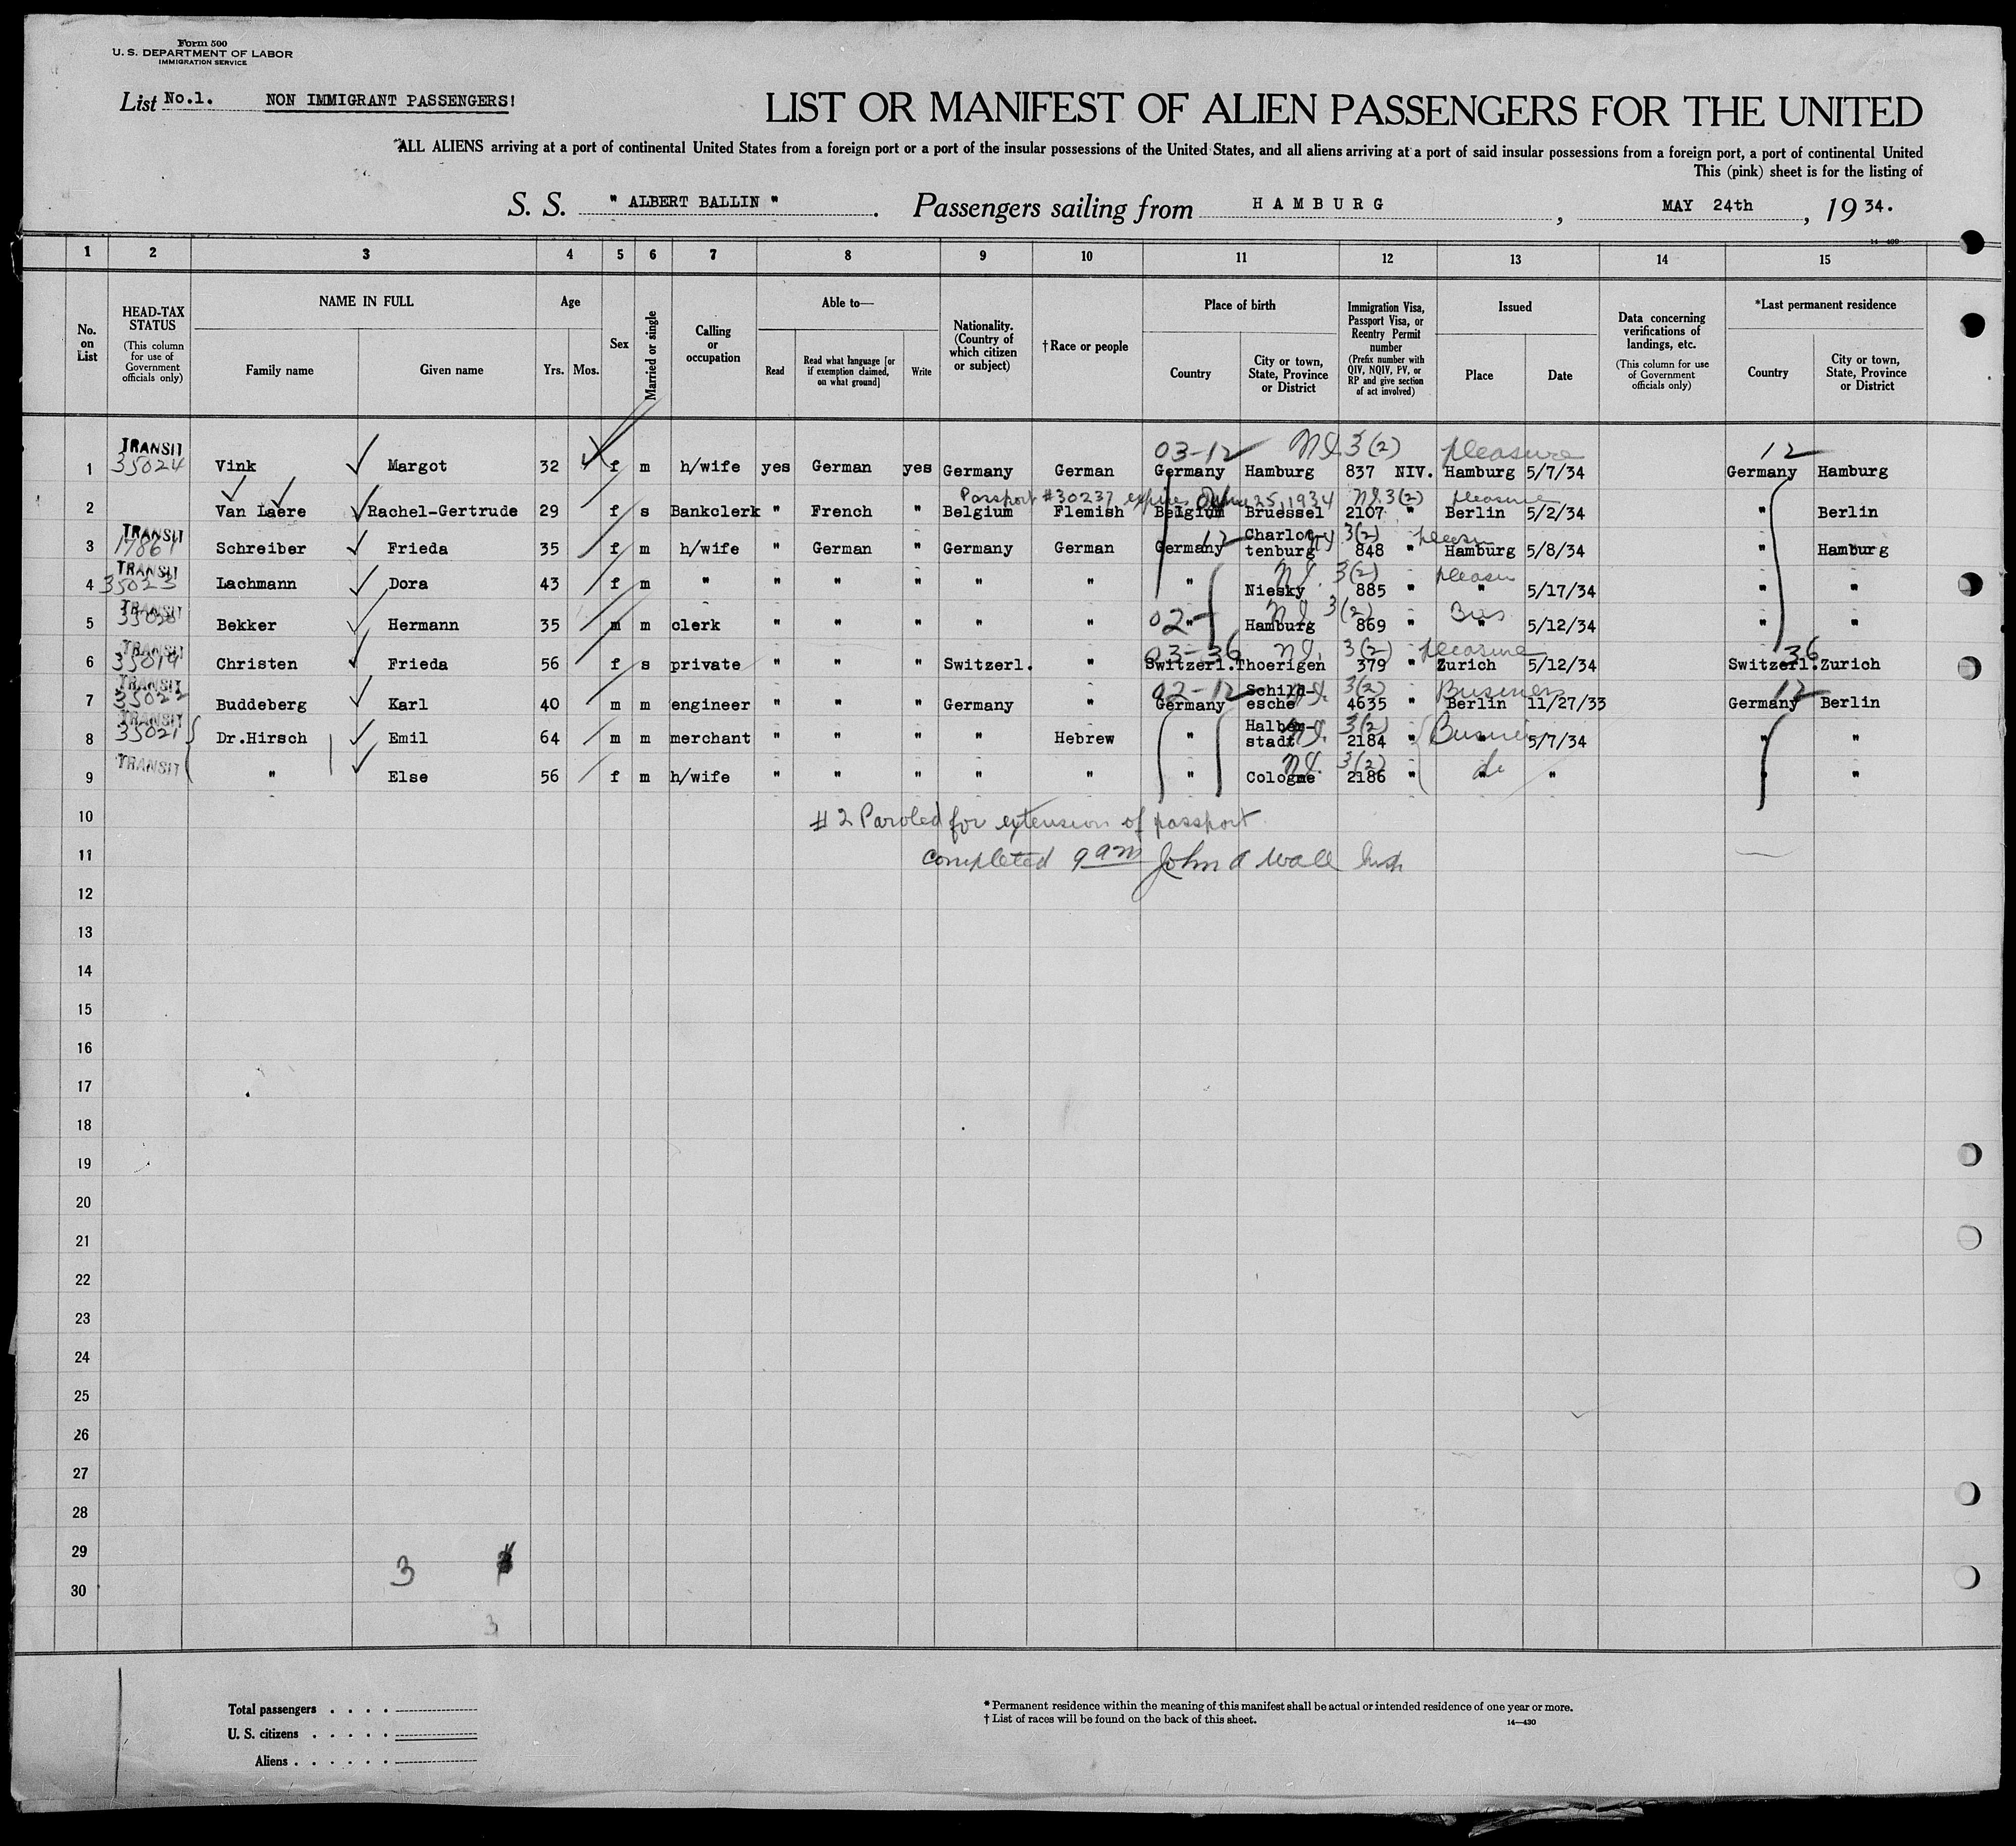 Form 500
U. S. DEPARTMENT OF LABOR
IMMIGRATION SERVICE
List No.1. NON IMMIGRANT PASSENGERS!
LIST OR MANIFEST OF ALIEN PASSENGERS FOR THE UNITED
ALL ALIENS arriving at a port of continental United States from a foreign port or a port of the insular possessions of the United States, and all aliens arriving at a port of said insular possessions from a foreign port, a port of continental United
This (pink) sheet is for the listing of
S. S. " ALBERT BALLIN " . Passengers sailing from HAMBURG , MAY 24th , 19 34.
14—430
1 2 3 4 5 6 7 8 9 10 11 12 13 14 15
No. on List
HEAD-TAX STATUS (This column for use of Government officials only)
NAME IN FULL
Family name Given name
Age
Yrs. Mos.
Sex
Married or single
Calling or occupation
Able to—
Read Read what language [or if exemption claimed, on what ground] Write
Nationality. (Country of which citizen or subject)
† Race or people
Place of birth
Country City or town, State, Province or District
Immigration Visa, Passport Visa, or Reentry Permit number (Prefix number with QIV, NQIV, PV, or RP and give section of act involved)
Issued
Place Date
Data concerning verifications of landings, etc. (This column for use of Government officials only)
*Last permanent residence
Country City or town, State, Province or District
TRANSIT 03-12 3(2) pleasure 12
1 35024 Vink Margot 32 f m h/wife yes German yes Germany German Germany Hamburg 837 NIV. Hamburg 5/7/34 Germany Hamburg
Passport #30237 expires 25, 1934 3(2) pleasure
2 Van Laere Rachel-Gertrude 29 f s Bankclerk " French " Belgium Flemish Belgium Bruessel 2107 " Berlin 5/2/34 " Berlin
TRANSIT 12 3(2)
3 17861 Schreiber Frieda 35 f m h/wife " German " Germany German Germany Charlottenburg 848 " Hamburg 5/8/34 " Hamburg
TRANSIT 3(2)
4 35023 Lachmann Dora 43 f m " " " " " " " Niesky 885 " " 5/17/34 " "
TRANSIT 02- 3(2) Bus
5 Bekker Hermann 35 m m clerk " " " " " " Hamburg 869 " " 5/12/34 " "
TRANSIT 03-36 3(2) pleasure 36
6 35019 Christen Frieda 56 f s private " " " Switzerl. " Switzerl. Thoerigen 379 " Zurich 5/12/34 Switzerl. Zurich
TRANSIT 02-12 3(2) Business 12
7 35022 Buddeberg Karl 40 m m engineer " " " Germany " Germany Schildesche 4635 " Berlin 11/27/33 Germany Berlin
TRANSIT 3(2)
8 35021 Dr.Hirsch Emil 64 m m merchant " " " " Hebrew " Halberstadt 2184 " " 5/7/34 " "
TRANSIT 3(2) do
9 " Else 56 f m h/wife " " " " " " Cologne 2186 " " " " "
10 # 2 Paroled for extension of passport
11 completed 9 am John A Wall
12
13
14
15
16
17
18
19
20
21
22
23
24
25
26
27
28
29 3
30
3
Total passengers . . . .
U. S. citizens . . . . .
Aliens . . . . . .
* Permanent residence within the meaning of this manifest shall be actual or intended residence of one year or more.
† List of races will be found on the back of this sheet.
14—430